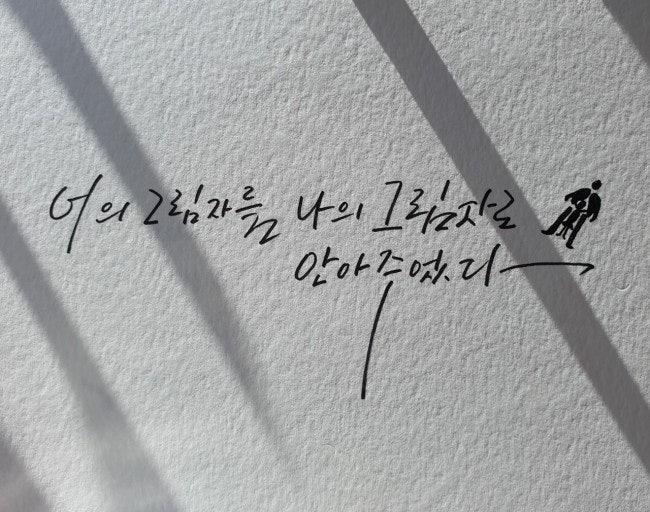 너의 그림자를 나의 그림자로
안아주었다